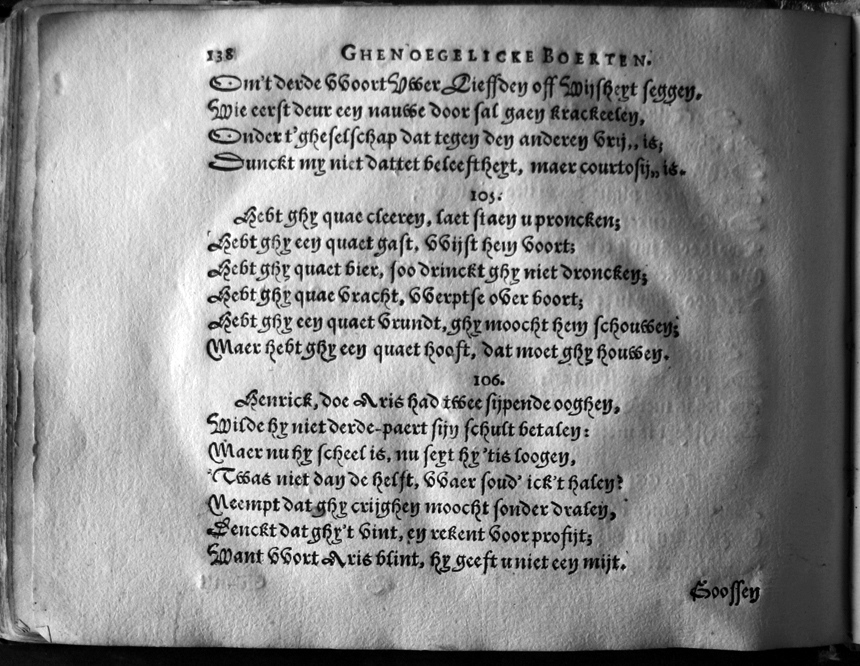 138 GHENOEGELICKE BOERTEN.
Om't derde VVoort Vwer Lieffden off Wijsheyt seggen.
Wie eerst deur een nauwe door sal gaen krackeelen,
Onder t'gheselschap dat tegen den anderen vrij,, is;
Dunckt my niet dattet beleeftheyt, maer courtosij,, is.
105.
Hebt ghy quae cleeren, laet staen u proncken;
Hebt ghy een quaet gast, VVijst hem voort;
Hebt ghy quaet bier, soo drinckt ghy niet droncken;
Hebt ghy quae vracht, VVerptse over boort;
Hebt ghy een quaet vrundt, ghy moocht hem schouwen;
Maer hebt ghy een quaet hooft, dat moet ghy houwen.
106.
Henrick, doe Aris had twee sijpende ooghen,
Wilde hy niet derde-paert sijn schult betalen:
Maer nu hy scheel is, nu seyt hy 'tis loogen,
'Twas niet dan de helft, VVaer soud' ick't halen?
Neempt dat ghy crijghen moocht sonder dralen,
Denckt dat ghy't vint, en rekent voor profijt;
Want VVort Aris blint, hy geeft u niet een mijt.
Goossen